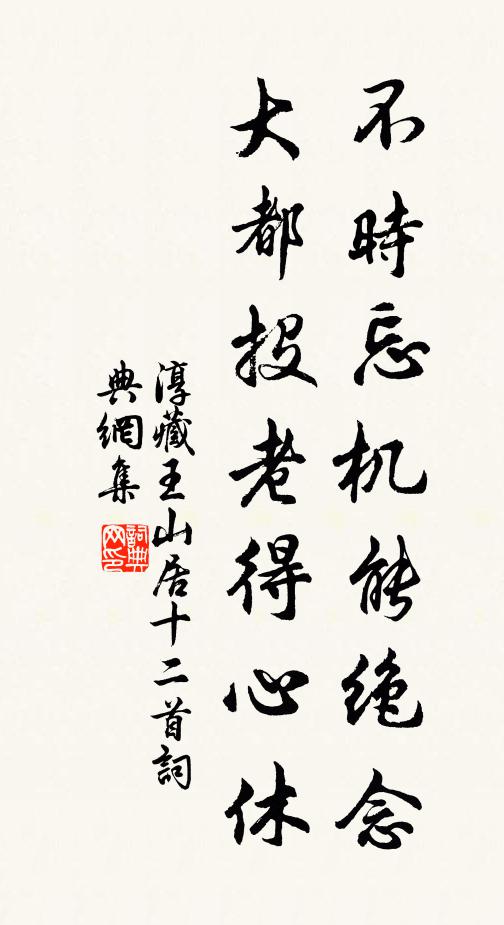 不時忘机能绝念
大都投老得心休
淳藏王山居十二首詞
典網集
詞典
网印